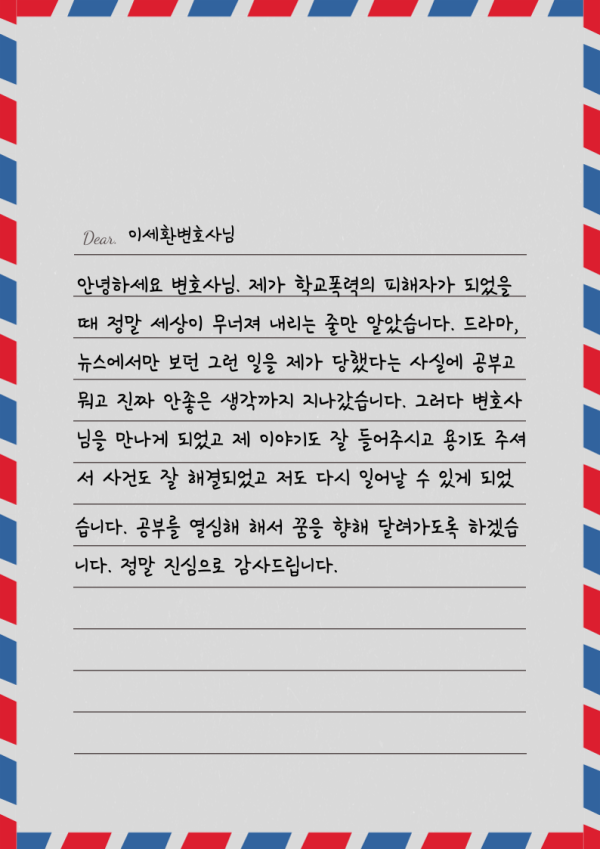 Dear. 이세환변호사님
안녕하세요 변호사님. 제가 학교폭력의 피해자가 되었을
때 정말 세상이 무너져 내리는 줄만 알았습니다. 드라마,
뉴스에서만 보던 그런 일을 제가 당했다는 사실에 공부고
뭐고 진짜 안좋은 생각까지 지나갔습니다. 그러다 변호사
님을 만나게 되었고 제 이야기도 잘 들어주시고 용기도 주셔
서 사건도 잘 해결되었고 저도 다시 일어날 수 있게 되었
습니다. 공부를 열심해 해서 꿈을 향해 달려가도록 하겠습
니다. 정말 진심으로 감사드립니다.